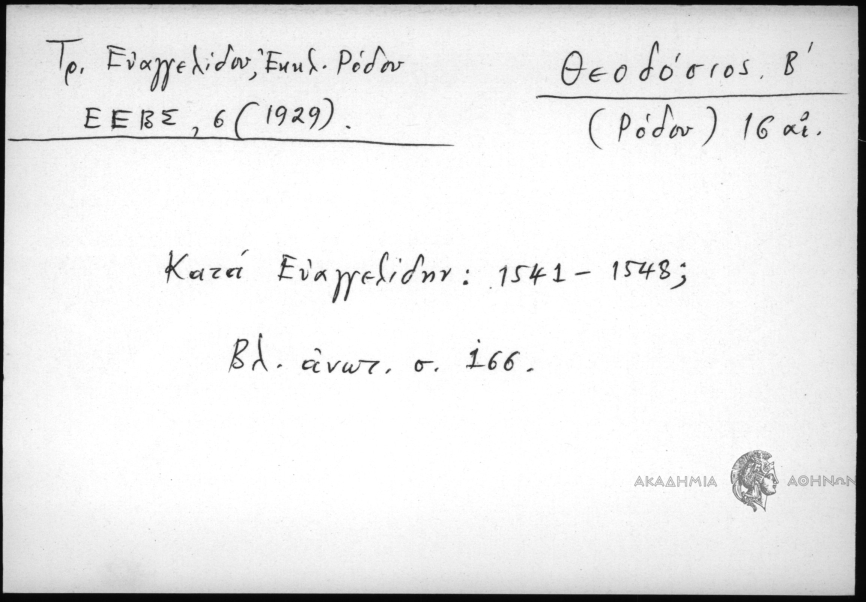 Τρ. Εὐαγγελίδου, Ἐκκλ. Ρόδου
ΕΕΒΣ, 6 (1929).
Θεοδόσιος Β΄
(Ρόδου) 16 αἰ.
Κατά Εὐαγγελίδην: 1541 – 1548;
Βλ. ἀνωτ. σ. 166.
ΑΚΑΔΗΜΙΑ ΑΘΗΝΩΝ